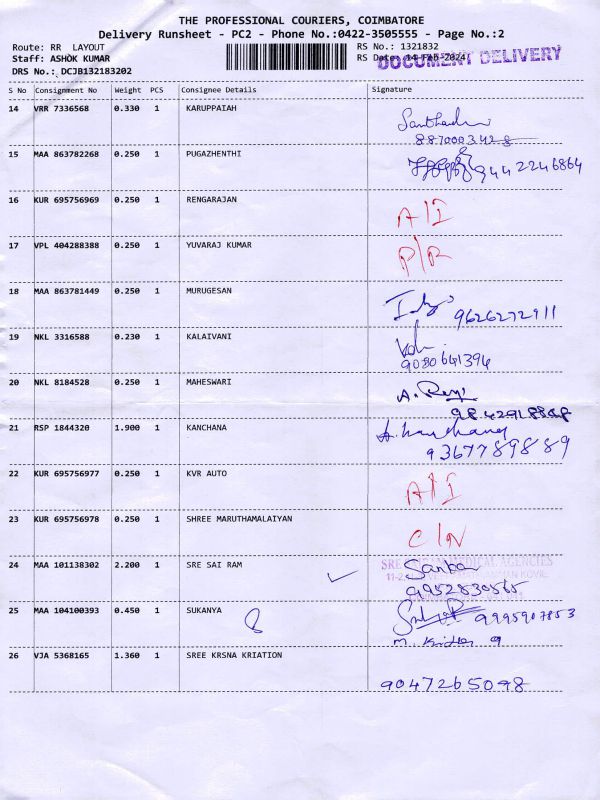 THE PROFESSIONAL COURIERS, COIMBATORE
Delivery Runsheet - PC2 - Phone No.:0422-3505555 - Page No.:2
Route: RR LAYOUT
RS No.: 1321832
Staff: ASHOK KUMAR
RS Date: 14-Feb-2024
DOCUMENT DELIVERY
DRS No.: DCJB132183202
S No Consignment No Weight PCS Consignee Details Signature
14 VRR 7336568 0.330 1 KARUPPAIAH
8870003428
15 MAA 863782268 0.250 1 PUGAZHENTHI
9442246864
16 KUR 695756969 0.250 1 RENGARAJAN A/I
17 VPL 404288388 0.250 1 YUVARAJ KUMAR P/R
18 MAA 863781449 0.250 1 MURUGESAN
9626272911
19 NKL 3316588 0.230 1 KALAIVANI
9080641394
20 NKL 8184528 0.250 1 MAHESWARI
21 RSP 1844320 1.900 1 KANCHANA
9367789889
22 KUR 695756977 0.250 1 KVR AUTO A/I
23 KUR 695756978 0.250 1 SHREE MARUTHAMALAIYAN
24 MAA 101138302 2.200 1 SRE SAI RAM
9952830565
25 MAA 104100393 0.450 1 SUKANYA
9995907853
26 VJA 5368165 1.360 1 SREE KRSNA KRIATION
9047265098